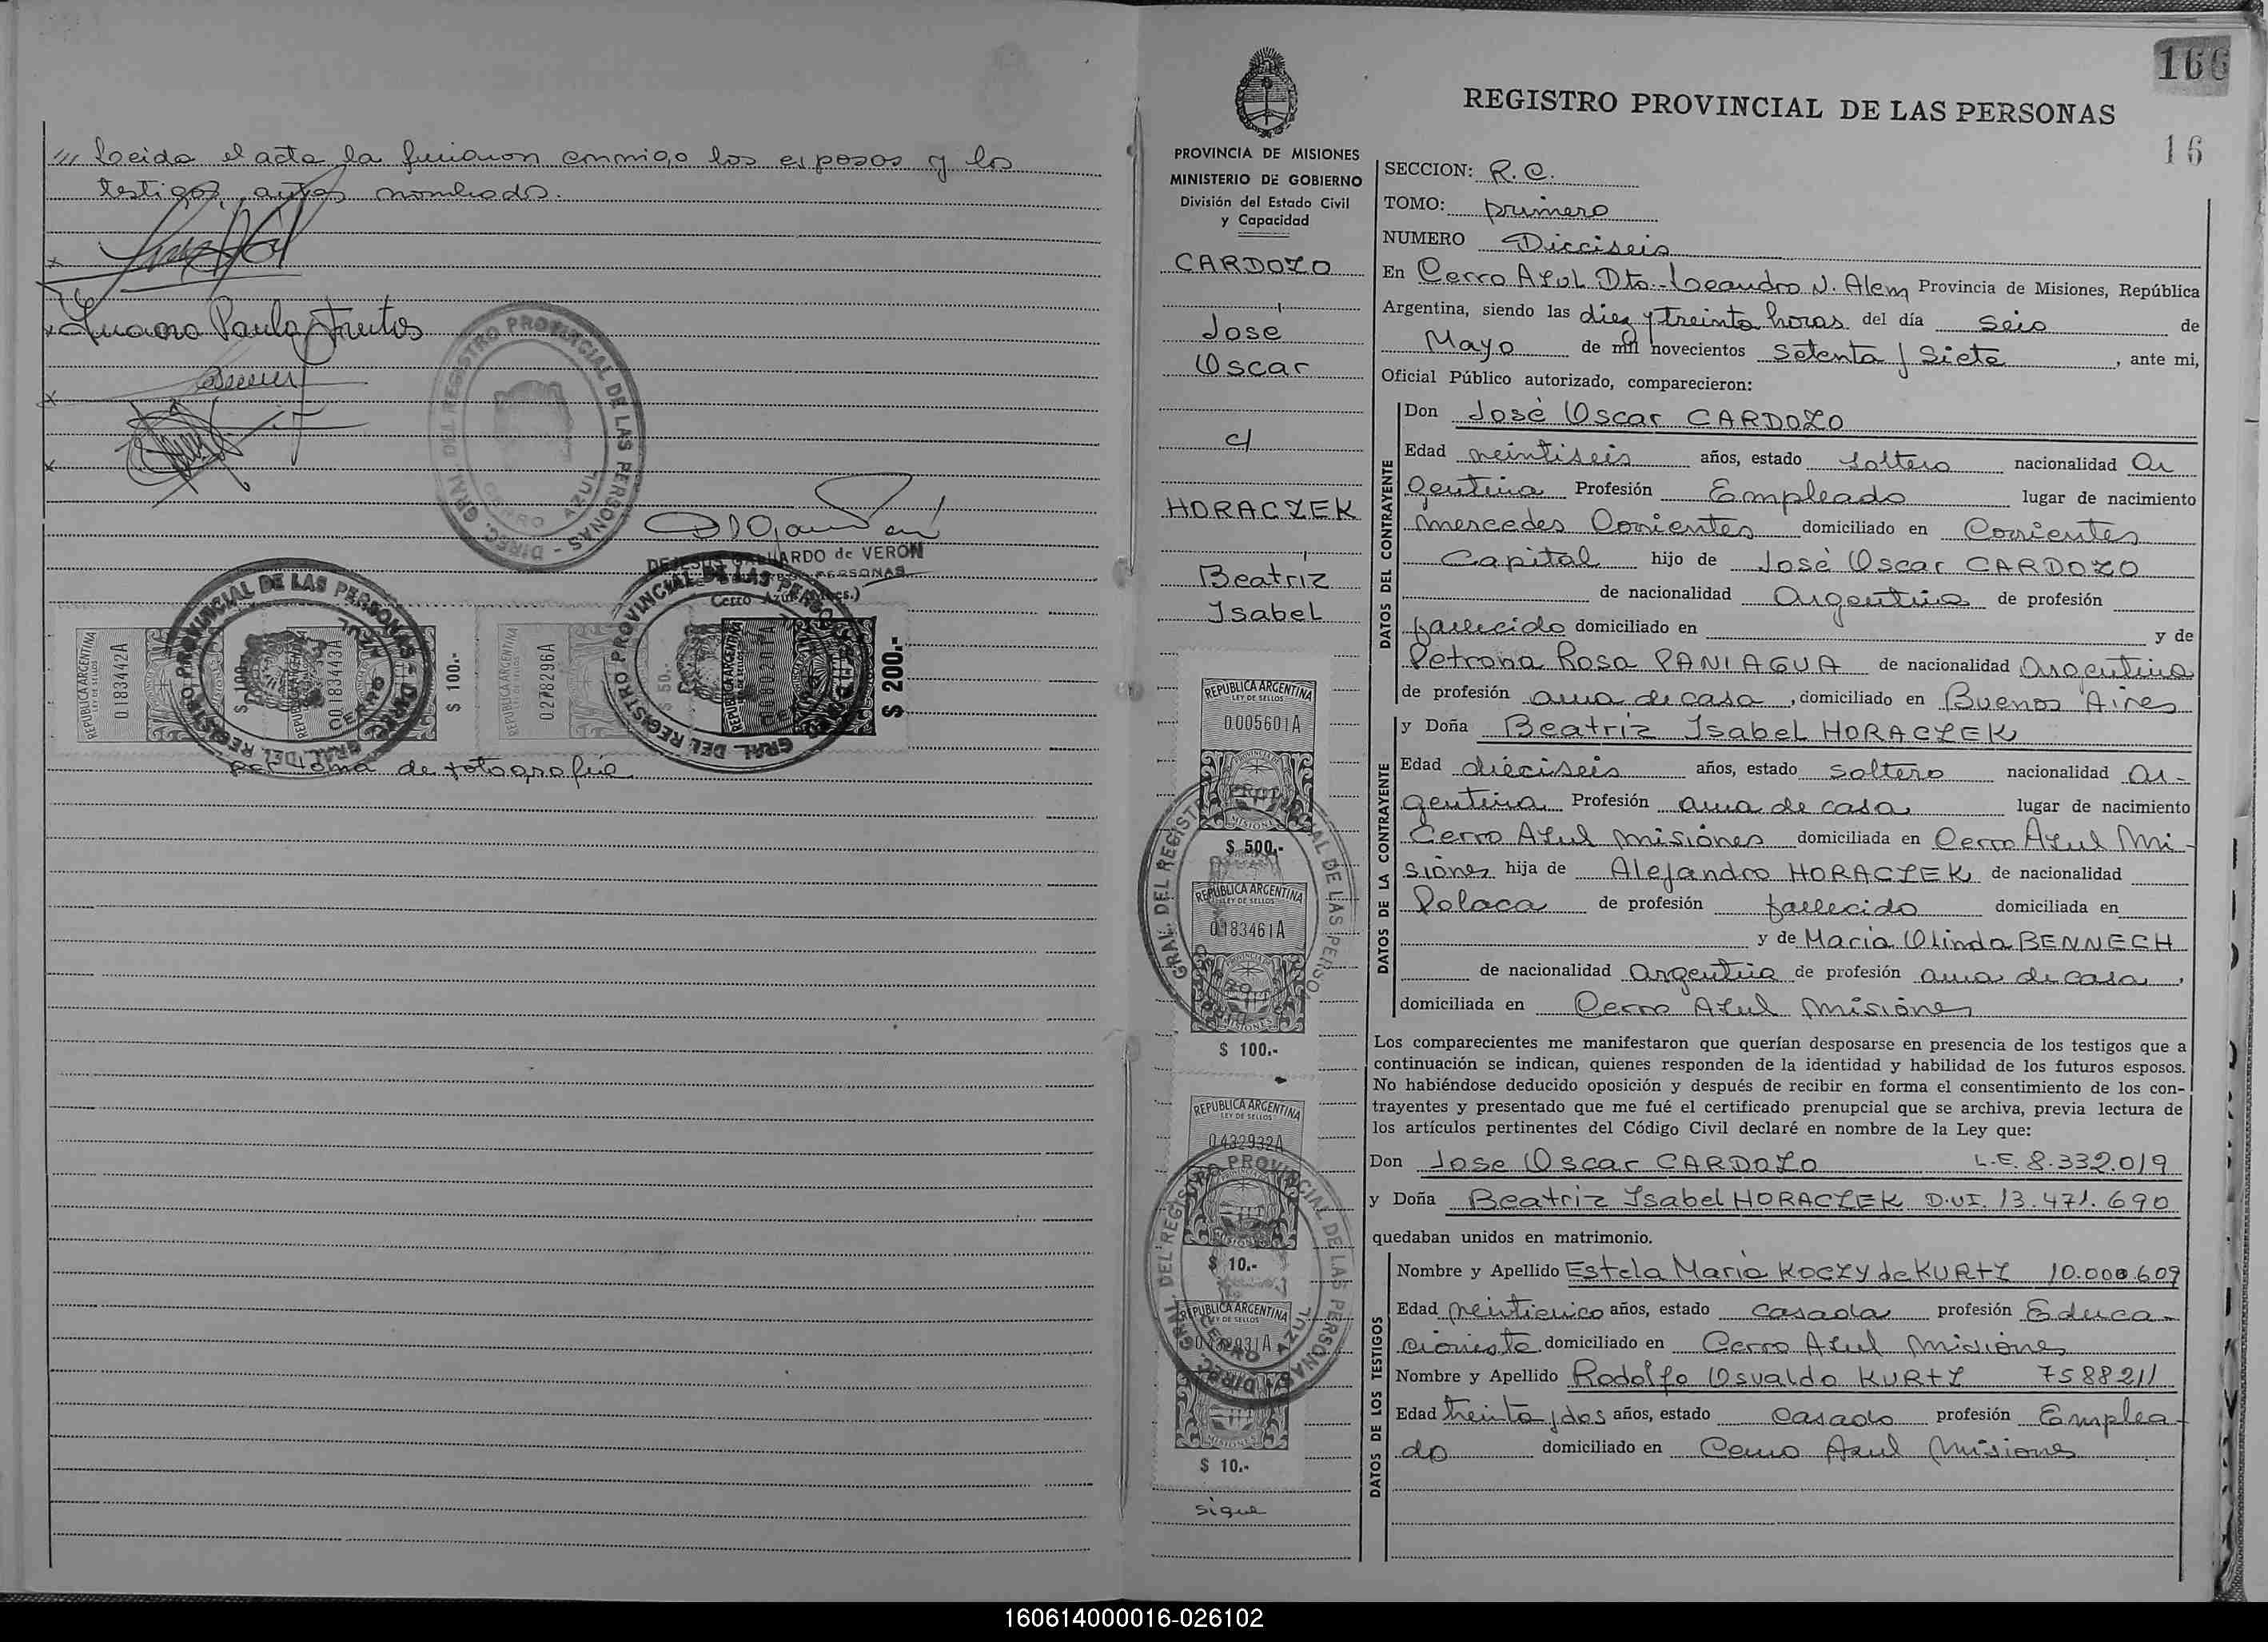 /// Leida el acta la firmaron conmigo los esposos y los
testigos antes nombrados.
Luciano Paula Frutos
DIREC. GRAL. DEL REGISTRO PROVINCIAL DE LAS PERSONAS
CERRO AZUL
DEJESUS GALLARDO de VERON
PERSONAS
Cerro Azul (Mnes.)
REPUBLICA ARGENTINA
LEY DE SELLOS
0.183442A
$ 100.-
REPUBLICA ARGENTINA
00183443A
$ 100.-
REPUBLICA ARGENTINA
LEY DE SELLOS
0.278296A
$ 50.-
REPUBLICA ARGENTINA
$ 200.-
DIREC. GRAL. DEL REGISTRO PROVINCIAL DE LAS PERSONAS
CERRO AZUL
de fotografia
166
REGISTRO PROVINCIAL DE LAS PERSONAS
16
PROVINCIA DE MISIONES
MINISTERIO DE GOBIERNO
División del Estado Civil
y Capacidad
CARDOZO
Jose
Oscar
c/
HORACZEK
Beatriz
Isabel
REPUBLICA ARGENTINA
LEY DE SELLOS
0.005601A
$ 500.-
REPUBLICA ARGENTINA
LEY DE SELLOS
0.183461A
$ 100.-
REPUBLICA ARGENTINA
LEY DE SELLOS
0.432932A
$ 10.-
REPUBLICA ARGENTINA
LEY DE SELLOS
00432931A
$ 10.-
sigue
SECCION: R.C.
TOMO: primero
NUMERO Dieciseis
En Cerro Azul Dto. Leandro N. Alem Provincia de Misiones, República
Argentina, siendo las diez y treinta horas del día seis de
Mayo de mil novecientos setenta y Siete, ante mi,
Oficial Público autorizado, comparecieron:
DATOS DEL CONTRAYENTE
Don José Oscar CARDOZO
Edad veintiseis años, estado soltero nacionalidad Ar
gentina Profesión Empleado lugar de nacimiento
mercedes Corrientes domiciliado en Corrientes
Capital hijo de José Oscar CARDOZO
de nacionalidad Argentina de profesión
fallecido domiciliado en y de
Petrona Rosa PANIAGUA de nacionalidad Argentina
de profesión ama de casa, domiciliado en Buenos Aires
DATOS DE LA CONTRAYENTE
y Doña Beatriz Isabel HORACZEK
Edad dieciseis años, estado soltera nacionalidad Ar-
gentina Profesión ama de casa lugar de nacimiento
Cerro Azul misiones domiciliada en Cerro Azul Mi-
siones hija de Alejandro HORACZEK de nacionalidad
Polaca de profesión fallecido domiciliada en
y de Maria Olinda BENNECH
de nacionalidad argentina de profesión ama de casa,
domiciliada en Cerro Azul misiones
Los comparecientes me manifestaron que querían desposarse en presencia de los testigos que a
continuación se indican, quienes responden de la identidad y habilidad de los futuros esposos.
No habiéndose deducido oposición y después de recibir en forma el consentimiento de los con-
trayentes y presentado que me fué el certificado prenupcial que se archiva, previa lectura de
los artículos pertinentes del Código Civil declaré en nombre de la Ley que:
Don Jose Oscar CARDOZO L.E. 8.332.019
y Doña Beatriz Isabel HORACZEK D.U.I. 13.471.690
quedaban unidos en matrimonio.
DATOS DE LOS TESTIGOS
Nombre y Apellido Estela Maria KOCZY de KURTZ 10.000.609
Edad veinticinco años, estado casada profesión Educa-
cionista domiciliado en Cerro Azul misiones
Nombre y Apellido Rodolfo Osvaldo KURTZ 7588211
Edad treinta y dos años, estado casado profesión Emplea-
do domiciliado en Cerro Azul misiones
160614000016-026102